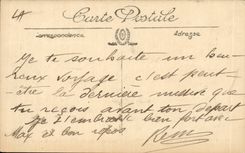 4A
Carte Postale
Correspondance
Adresse
Je te souhaite un heu-
reux voyage c'est peut-
être la dernière missive que
tu reçois avant ton départ
Je t'embrasse bien fort avec
Max et bon repos